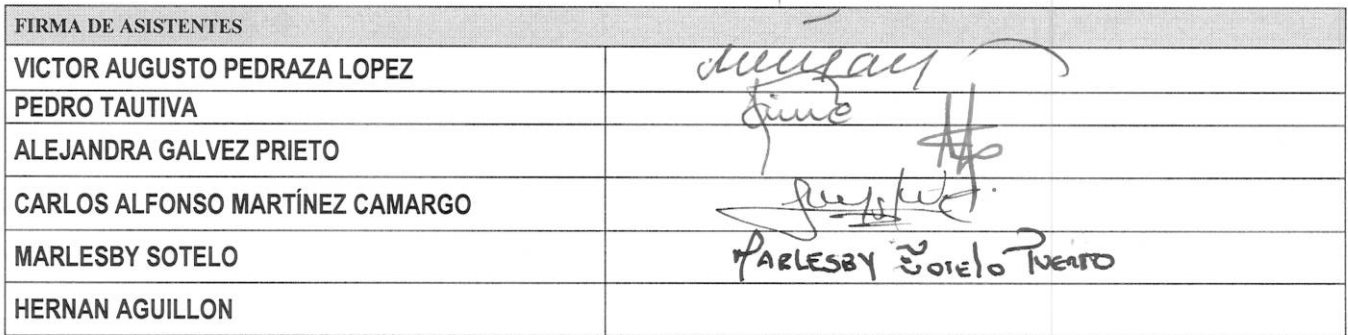 FIRMA DE ASISTENTES
VICTOR AUGUSTO PEDRAZA LOPEZ
PEDRO TAUTIVA
ALEJANDRA GALVEZ PRIETO
CARLOS ALFONSO MARTÍNEZ CAMARGO
MARLESBY SOTELO MARLESBY SOTELO PUERTO
HERNAN AGUILLON